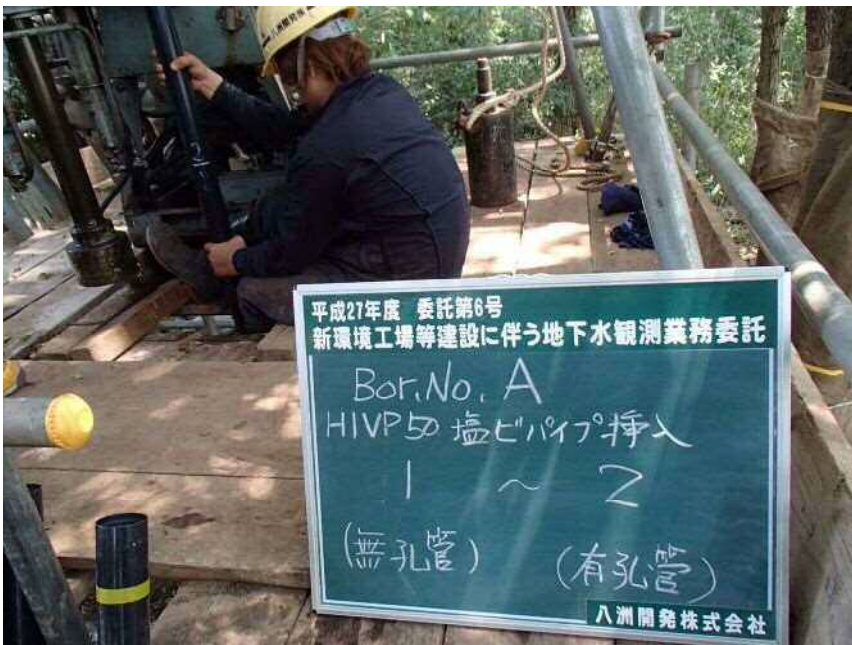 八洲開発㈱
平成27年度 委託第6号
新環境工場等建設に伴う地下水観測業務委託
Bor.No. A
HIVP50 塩ビパイプ挿入
1 ～ 2
(無孔管) (有孔管)
八洲開発株式会社